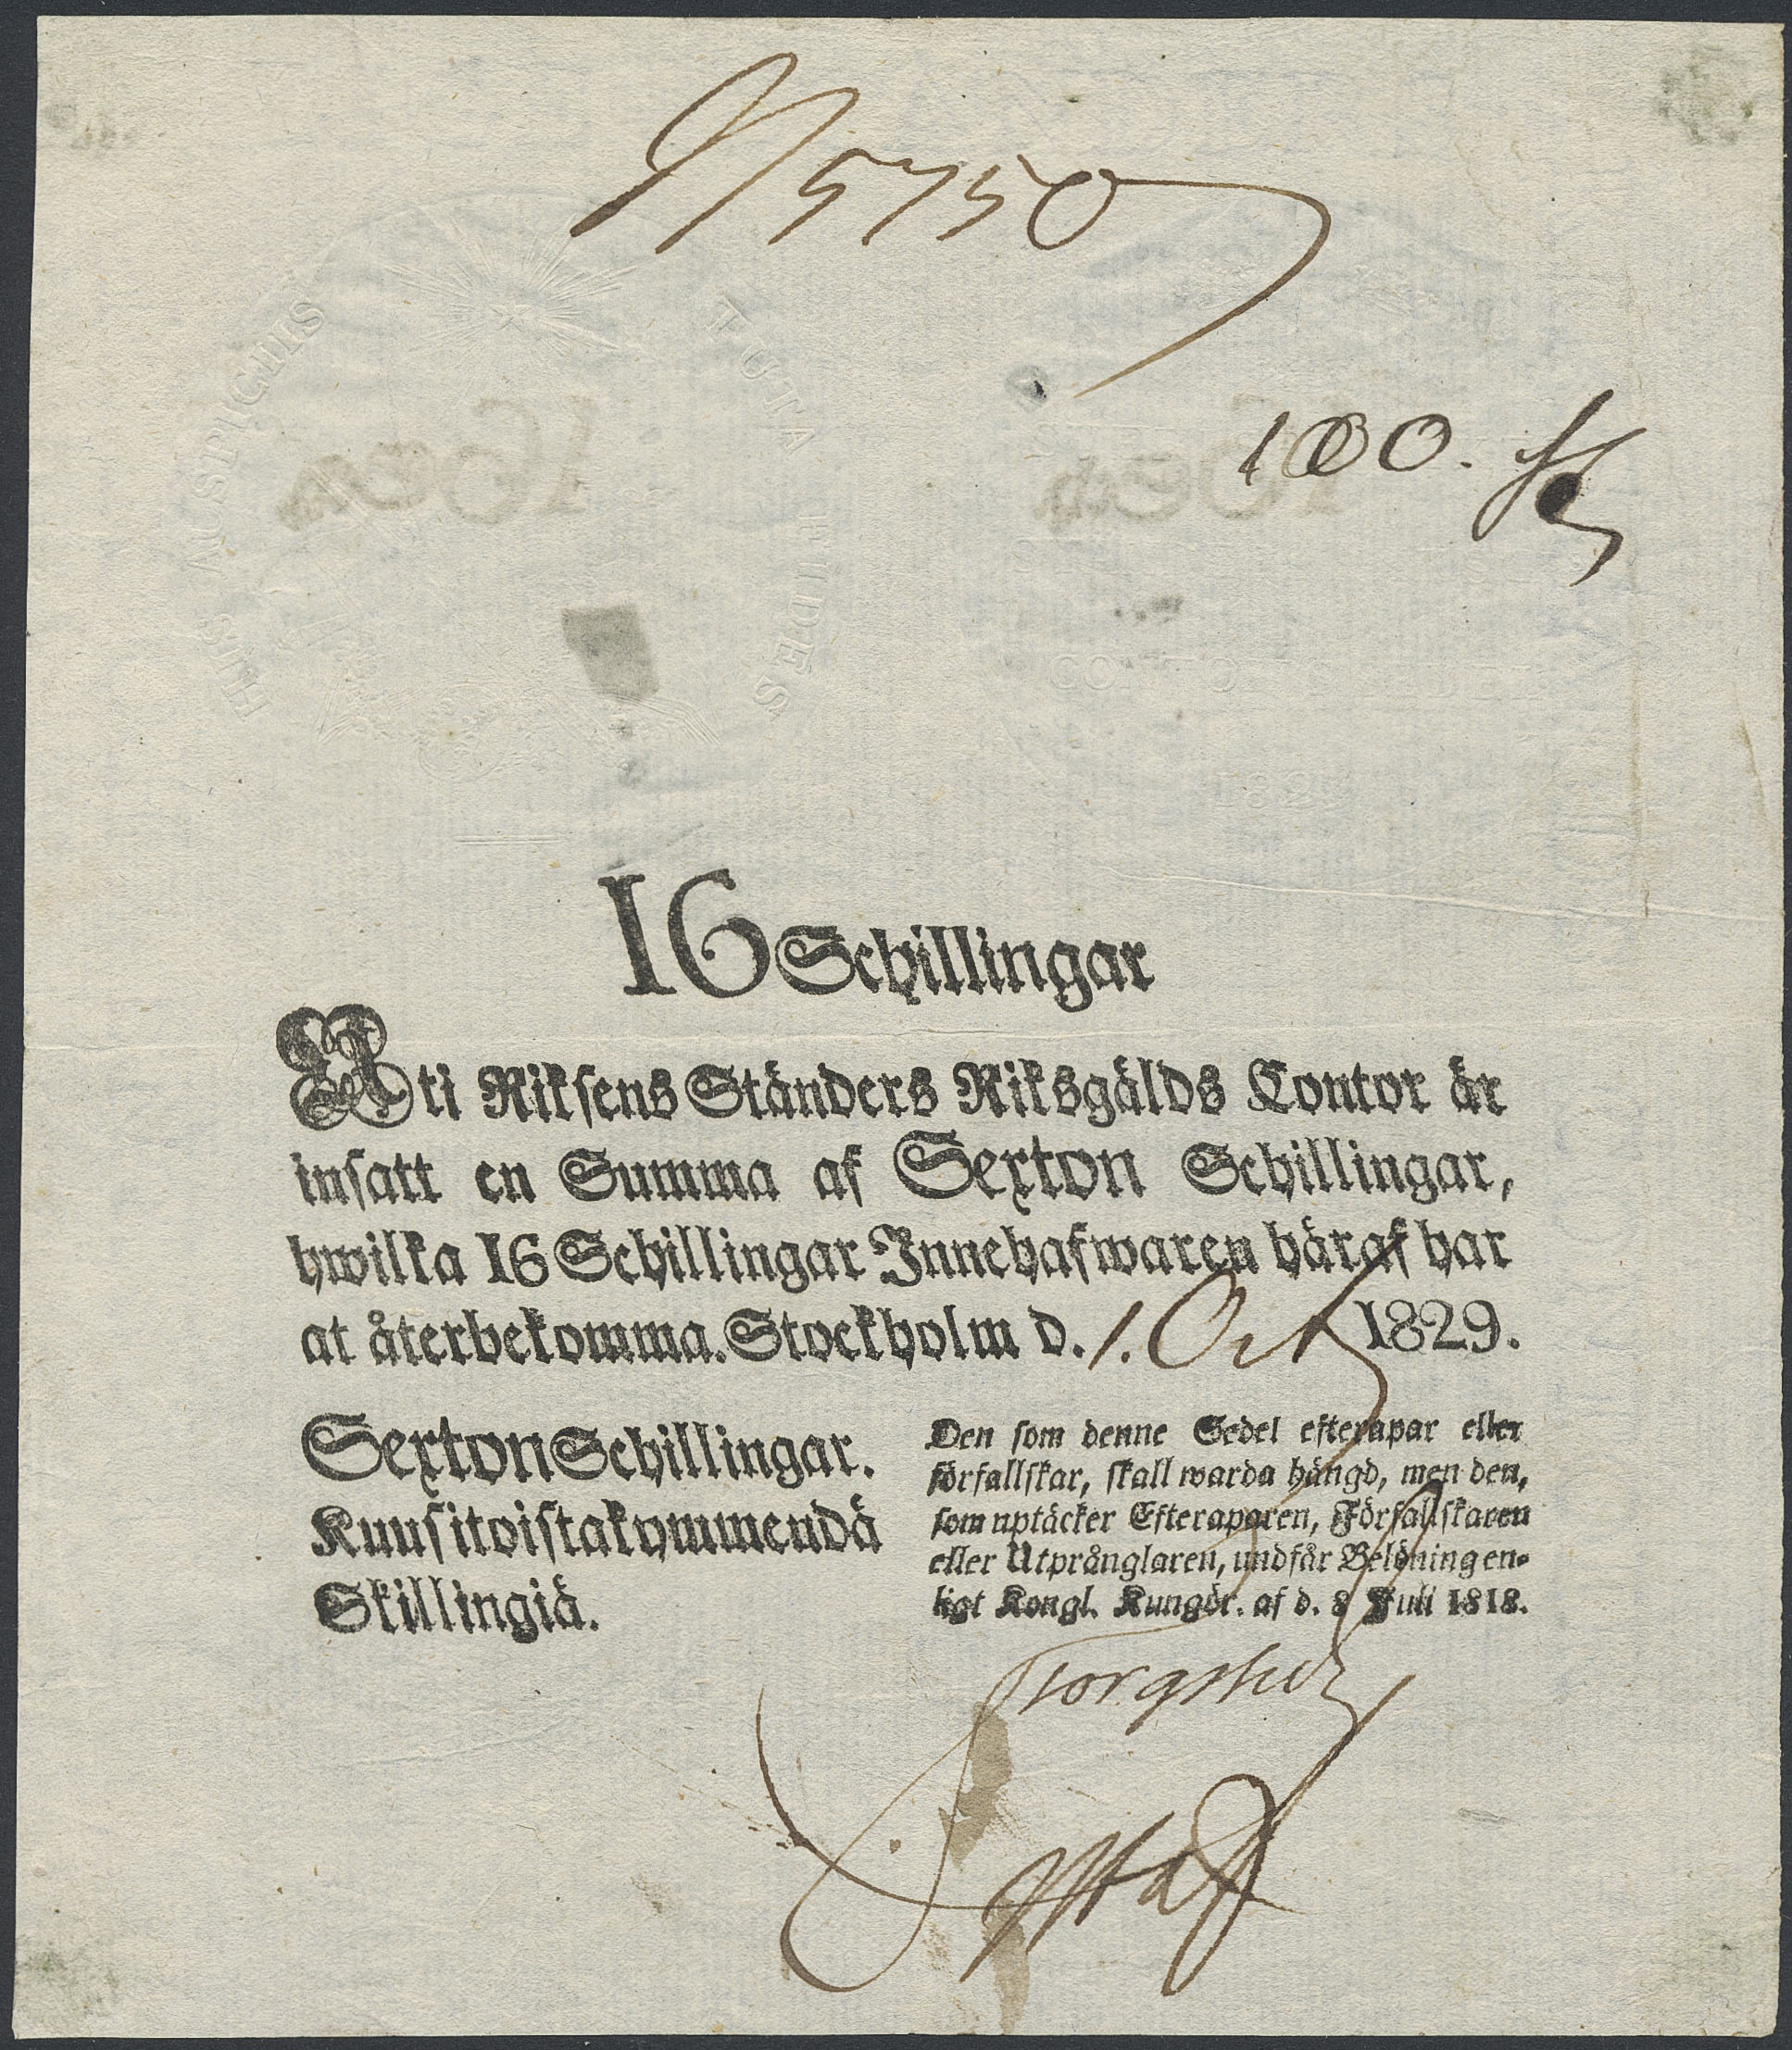 N 5750
HIS AUSPICIIS TUTA FIDES
100.
1829
16 Schillingar
Uti Riksens Ständers Riksgälds Contor är
insatt en Summa af Sexton Schillingar,
hwilka 16 Schillingar Innehafwaren häraf har
at återbekomma. Stockholm d. 1. Oct 1829.
Sexton Schillingar.
Kuusitoistakymmendä
Skillingiä.
Den som denne Sedel efterapar eller
förfallskar, skall warda hängd, men den,
som uptäcker Efteraparen, Förfallskaren
eller Utprånglaren, undfår Belöning en-
ligt Kongl. Kungör. af d. 8 Juli 1818.